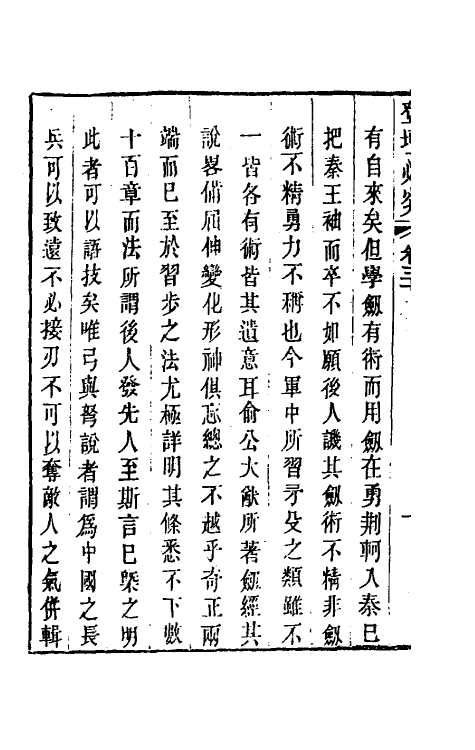 有自來矣但學劔有術而用劔在勇荆軻入秦已
把秦王袖而卒不如願後人譏其劔術不精非劔
術不精勇力不稱也今軍中所習矛殳之類雖不
一皆各有術皆其遺意耳俞公大猷所著劔經其
說畧備屈伸變化形神俱忘總之不越乎奇正兩
端而已至於習步之法尤極詳明其條悉不下數
十百章而法所謂後人發先人至斯言已槩之明
此者可以語技矣唯弓與弩說者謂爲中國之長
兵可以致遠不必接刃不可以奪敵人之氣併輯